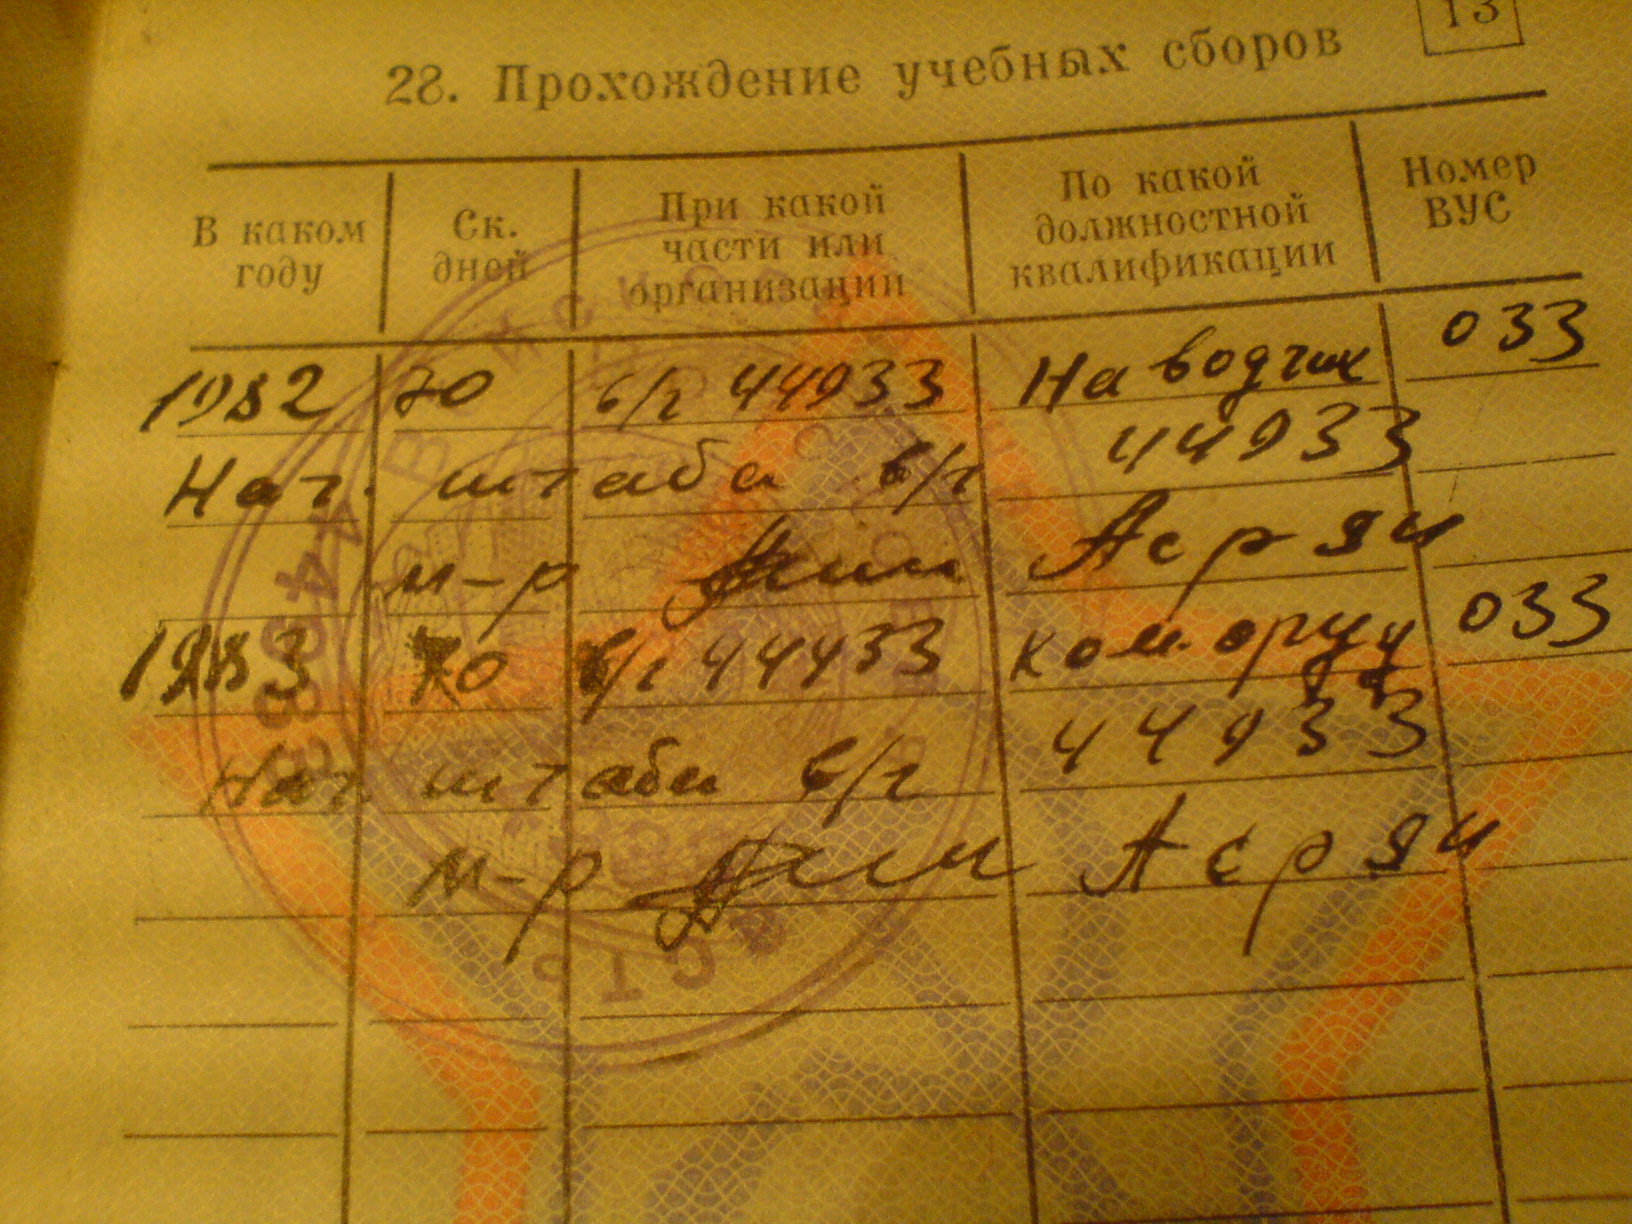 13
28. Прохождение учебных сборов
В каком году
Ск. дней
При какой части или организации
По какой должностной квалификации
Номер ВУС
1982 70 в/ч 44933 Наводчик 033
Нач. штаба в/ч 44933
м-р
1983 70 в/ч 44933 ком. оруд 033
Нач. штаба в/ч 44933
м-р